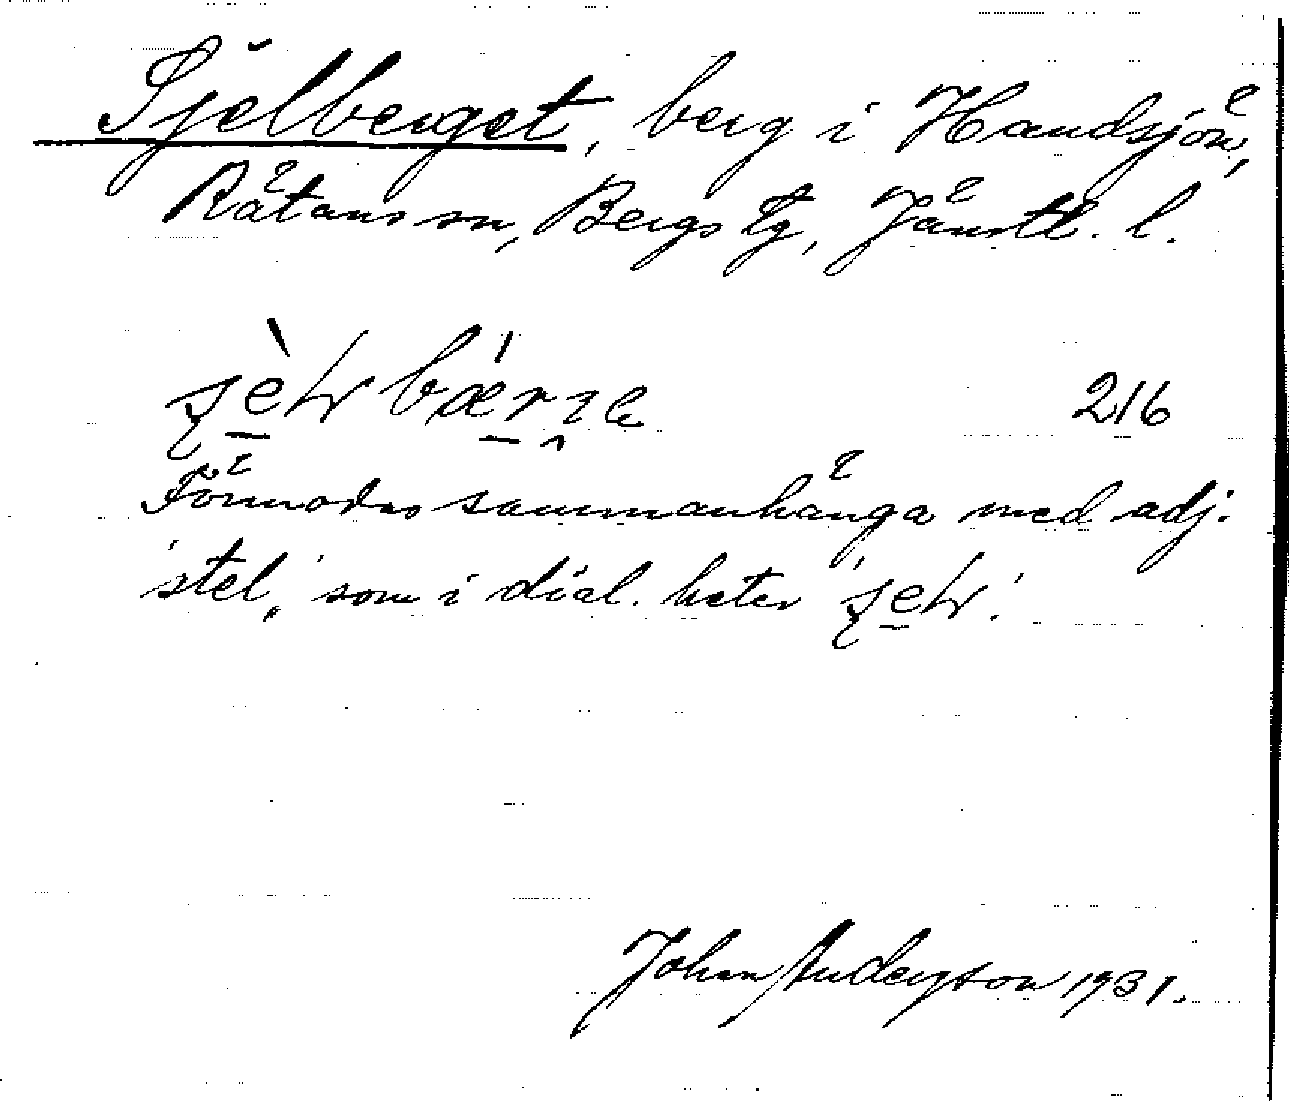 Sjelberget, berg i Handsjön,
Rätans sn, Bergs tg, Jämtl. l.
216
Förmodas sammanhänga med adj.
'stel,' som i dial. heter
Johan Anderson 1931.